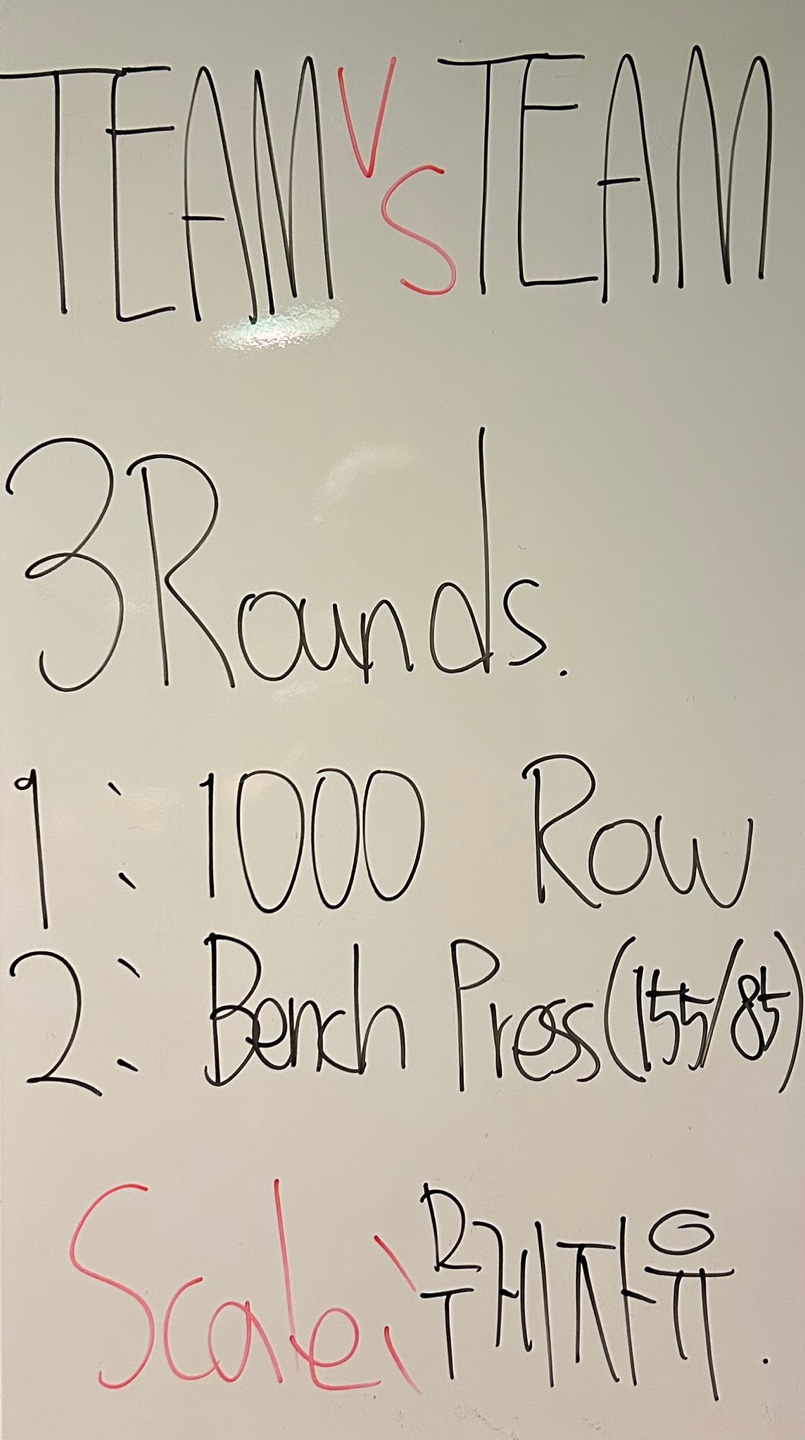 TEAM VS TEAM
3 Rounds.
1: 1000 Row
2: Bench Press (155/85)
Scale: 무게자유.